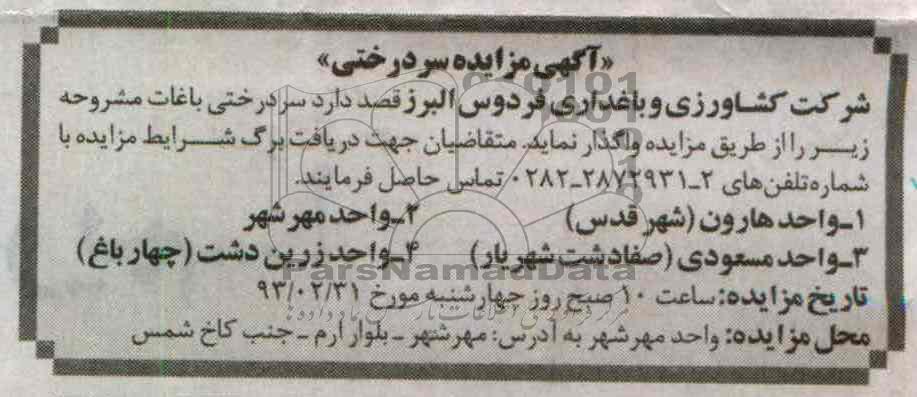 «آگهی مزایده سردرختی»
شرکت کشاورزی و باغداری فردوس البرز قصد دارد سردرختی باغات مشروحه
زیر را از طریق مزایده واگذار نماید. متقاضیان جهت دریافت برگ شرایط مزایده با
شماره تلفن‌های ۲-۲۸۷۲۹۳۱-۰۲۸۲ تماس حاصل فرمایند.
۱-واحد هارون (شهر قدس) ۲-واحد مهر شهر
۳-واحد مسعودی (صفادشت شهریار) ۴-واحد زرین دشت (چهار باغ)
ParsNamadData
تاریخ مزایده: ساعت ۱۰ صبح روز چهارشنبه مورخ ۹۳/۰۲/۳۱
محل مزایده: واحد مهرشهر به آدرس: مهرشهر - بلوار ارم - جنب کاخ شمس